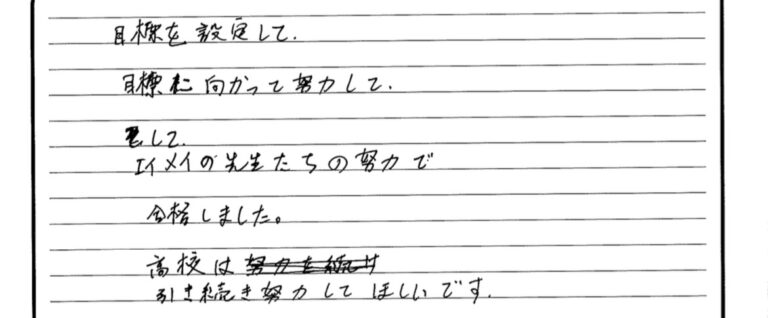 目標を設定して.
目標に向かって努力して.
そして.
エイメイの先生たちの努力で
合格しました。
高校は努力を続け
引き続き努力してほしいです.